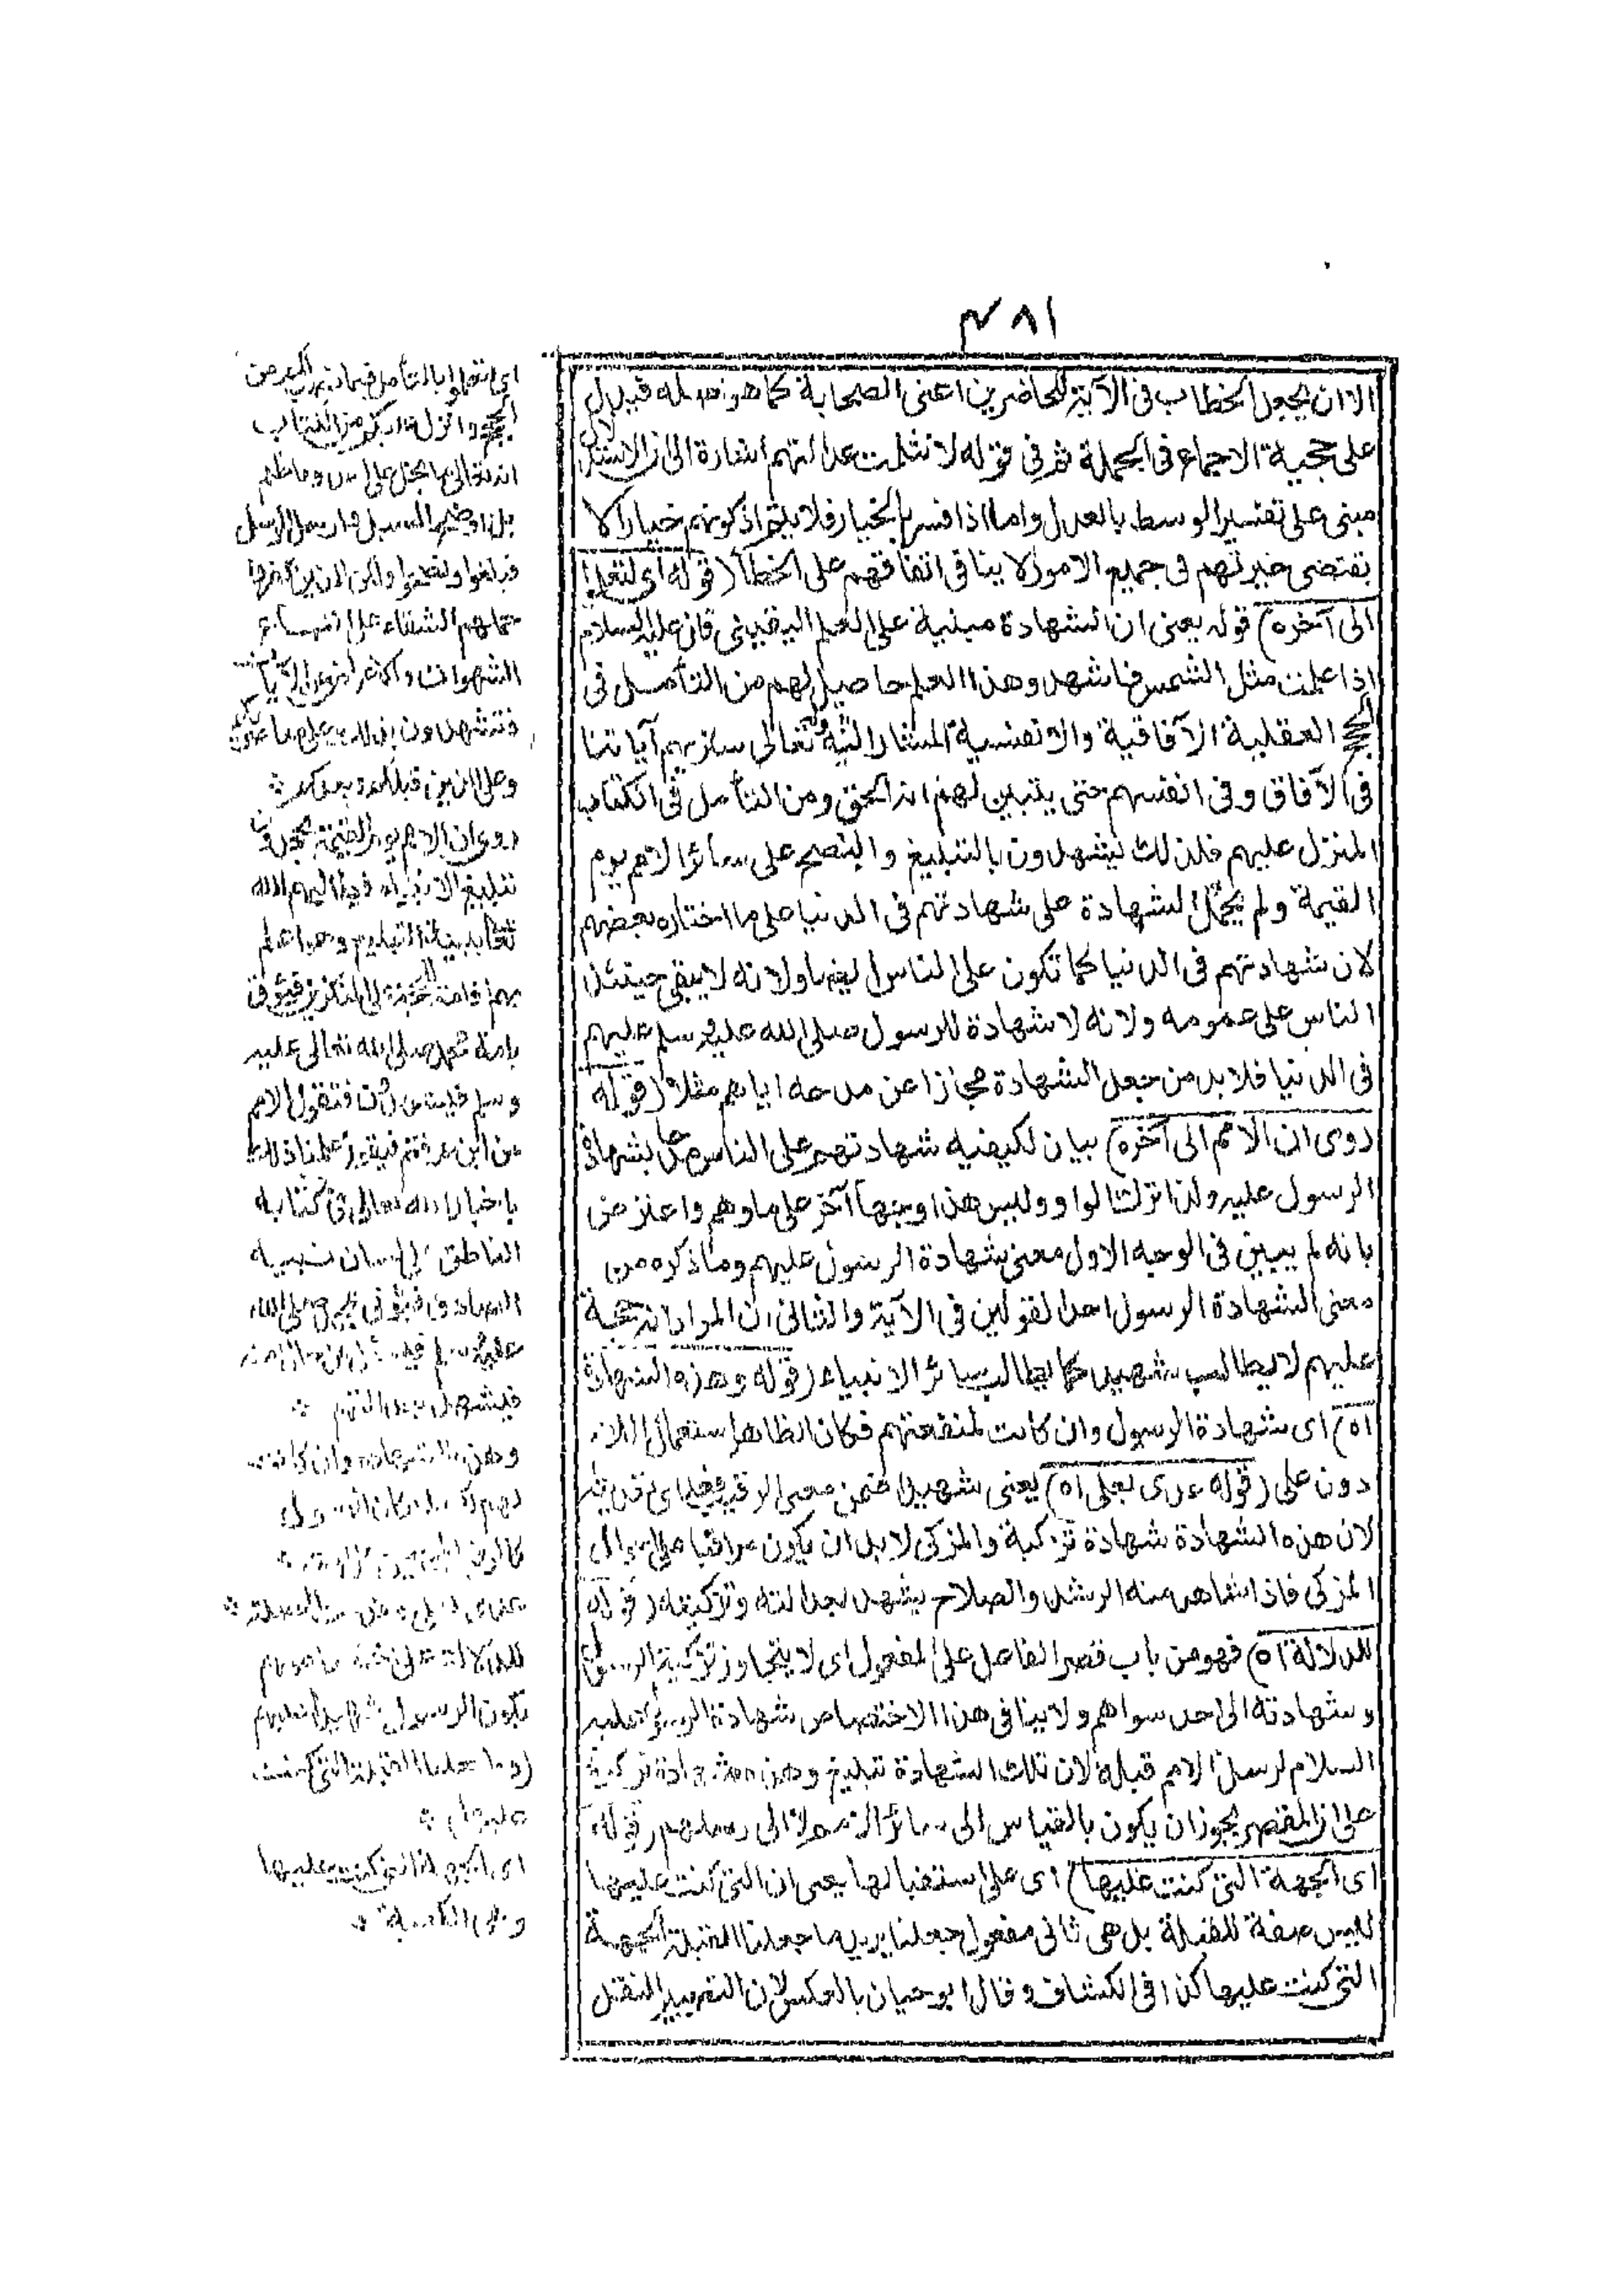 ٤٨١
الا ان يجعل الخطاب فى الآية للحاضرين اعنى الصحابة كما هو اصله فيدل
على حجية الاجماع فى الجملة ثم فى قوله لانثلمت عدالتهم اشارة الى ان الاستدلال
مبنى على تفسير الوسط بالعدل واما اذا فسر بالخيار فلا يتم اذ كونهم خيارا لا
يقتضى خيرتهم فى جميع الامور لا ينافى اتفاقهم على الخطأ (قوله اى لتعلموا
الى آخره) قوله يعنى ان الشهادة مبنية على العلم اليقينى قال عليه السلام
اذا علمت مثل الشمس فاشهد وهذا العلم حاصل لهم من التأمل فى
الحجج العقلية الآفاقية والانفسية المشار اليه بقوله تعالى سنريهم آياتنا
فى الآفاق وفى انفسهم حتى يتبين لهم انه الحق ومن التأمل فى الكتاب
المنزل عليهم فلذلك يشهدون بالتبليغ والنصح على سائر الامم يوم
القيمة ولم يحمل الشهادة على شهادتهم فى الدنيا على ما اختاره بعضهم
لان شهادتهم فى الدنيا كما تكون على الناس لهم ولانه لا يبقى حينئذ
الناس على عمومه ولانه لا شهادة للرسول صلى الله عليه وسلم عليهم
فى الدنيا فلا بد من جعل الشهادة مجازا عن مدحه اياهم مثلا (قوله
روى ان الامم الى آخره) بيان لكيفيه شهادتهم على الناس بشهادة
الرسول عليه ولذا ترك الواو وليس هذا وجها آخر على ما وهم واعترض
بانه لم يبين فى الوجه الاول معنى شهادة الرسول عليهم وما ذكره من
معنى الشهادة الرسول احد القولين فى الآية والثانى ان المراد انه حجة
عليهم لا يطالب بشهيد كما يطالب سائر الانبياء (قوله وهذه الشهادة
اه) اى شهادة الرسول وان كانت لمنفعتهم فكان الظاهر استعمال اللام
دون على (قوله عدى بعلى اه) يعنى شهيدا ضمن معنى الرقيب
لان هذه الشهادة شهادة تزكية والمزكى لا بد ان يكون مراقبا على احوال
المزكى فاذا شاهد منه الرشد والصلاح يشهد بعدالته وتزكيته (قوله
للدلالة اه) فهو من باب قصر الفاعل على المفعول اى لا يتجاوز تزكية الرسول
وشهادته الى احد سواهم ولا ينافى هذا الاختصاص شهادة الرسول عليه
السلام لرسل الامم قبله لان تلك الشهادة تبليغ وهذه شهادة تزكية
على ان القصر يجوز ان يكون بالقياس الى سائر الامم لا الى رسلهم (قوله
اى الجهة التى كنت عليها) اى على استقبالها يعنى ان التى كنت عليها
ليس صفة للقبلة بل هى ثانى مفعول جعلنا يريد ما جعلنا القبلة الجهة
التى كنت عليها كذا فى الكشاف وقال ابو حيان بالعكس لان التصيير التنقل
اى لتعلموا بالتأمل فيما نصب لكم من
الحجج وانزل عليكم من الكتاب
انه تعالى ما بخل على احد وما ظلم
بل اوضح السبل وارسل الرسل
فبلغوا ونصحوا ولكن الذين كفروا
حملهم الشقاء على اتباع
الشهوات والاعراض عن الآيات
فتشهدون بذلك على معاصريكم
وعلى الذين قبلكم وبعدكم
روى ان الامم يوم القيمة يجحدون
تبليغ الانبياء فيطالبهم الله
تعالى ببينة التبليغ وهو اعلم
بهم اقامة للحجة على المنكرين فيؤتى
بامة محمد صلى الله تعالى عليه
وسلم فيشهدون فتقول الامم
من اين عرفتم فيقولون علمنا ذلك
باخبار الله تعالى فى كتابه
الناطق على لسان نبيه
الصادق فيؤتى بمحمد صلى الله
عليه وسلم فيسئل عن حال امته
فيشهد بعدالتهم
وهذه الشهادة وان كانت
لهم لكن لما كان الرسول
كالرقيب المهيمن على امته
عدى بعلى وقدمت الصلة
للدلالة على اختصاصهم
بكون الرسول شهيدا عليهم
(وما جعلنا القبلة التى كنت
عليها)
اى الجهة التى كنت عليها
وهى الكعبة